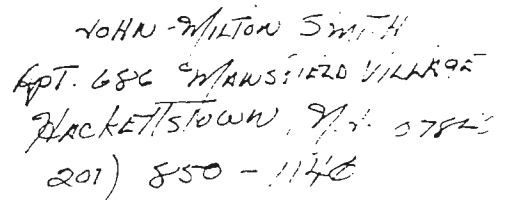 JOHN MILTON SMITH
APT. 686 MANSFIELD VILLAGE
HACKETTSTOWN, N.J.
201) 850 -